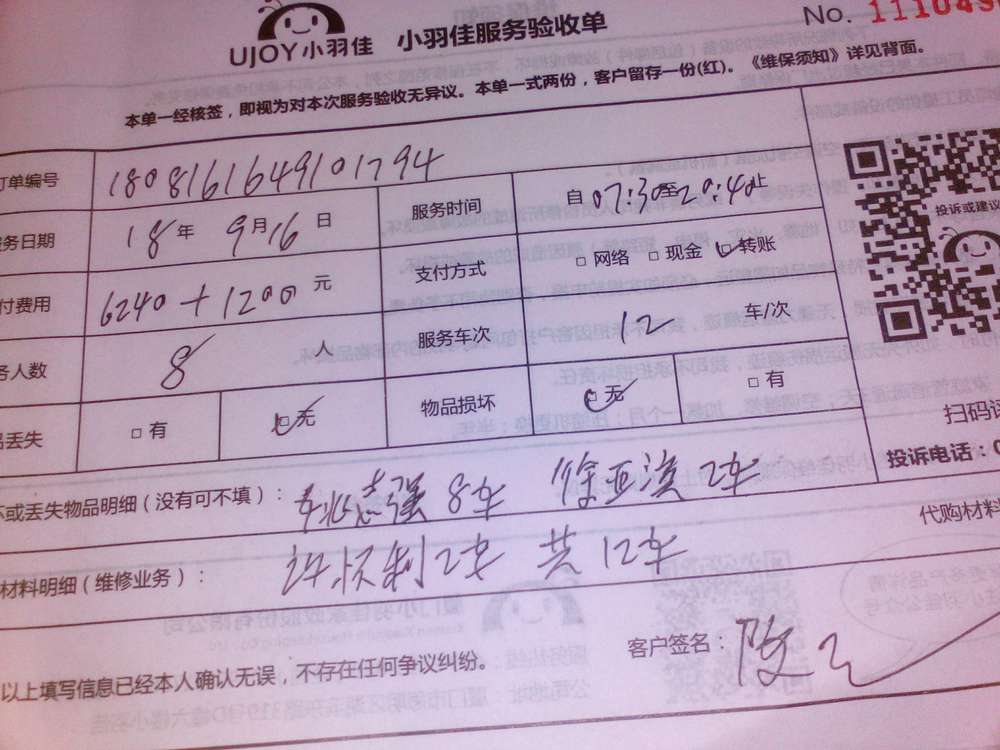 UJOY小羽佳 小羽佳服务验收单 No. 111049
本单一经核签，即视为对本次服务验收无异议。本单一式两份，客户留存一份(红)。《维保须知》详见背面。
订单编号 18081616649101794
务日期 18年 9月16日 服务时间 自07:30至20:40止
付费用 6240+1200元 支付方式 □网络 □现金 ☑转账
务人数 8人 服务车次 12 车/次
品丢失 □有 ☑无 物品损坏 ☑无 □有
投诉或建议
扫码
投诉电话：0
坏或丢失物品明细（没有可不填）： 志强 8车 徐亚滨 2车
代购材料
材料明细（维修业务）： 2车 共12车
以上填写信息已经本人确认无误，不存在任何争议纠纷。
客户签名： 陈